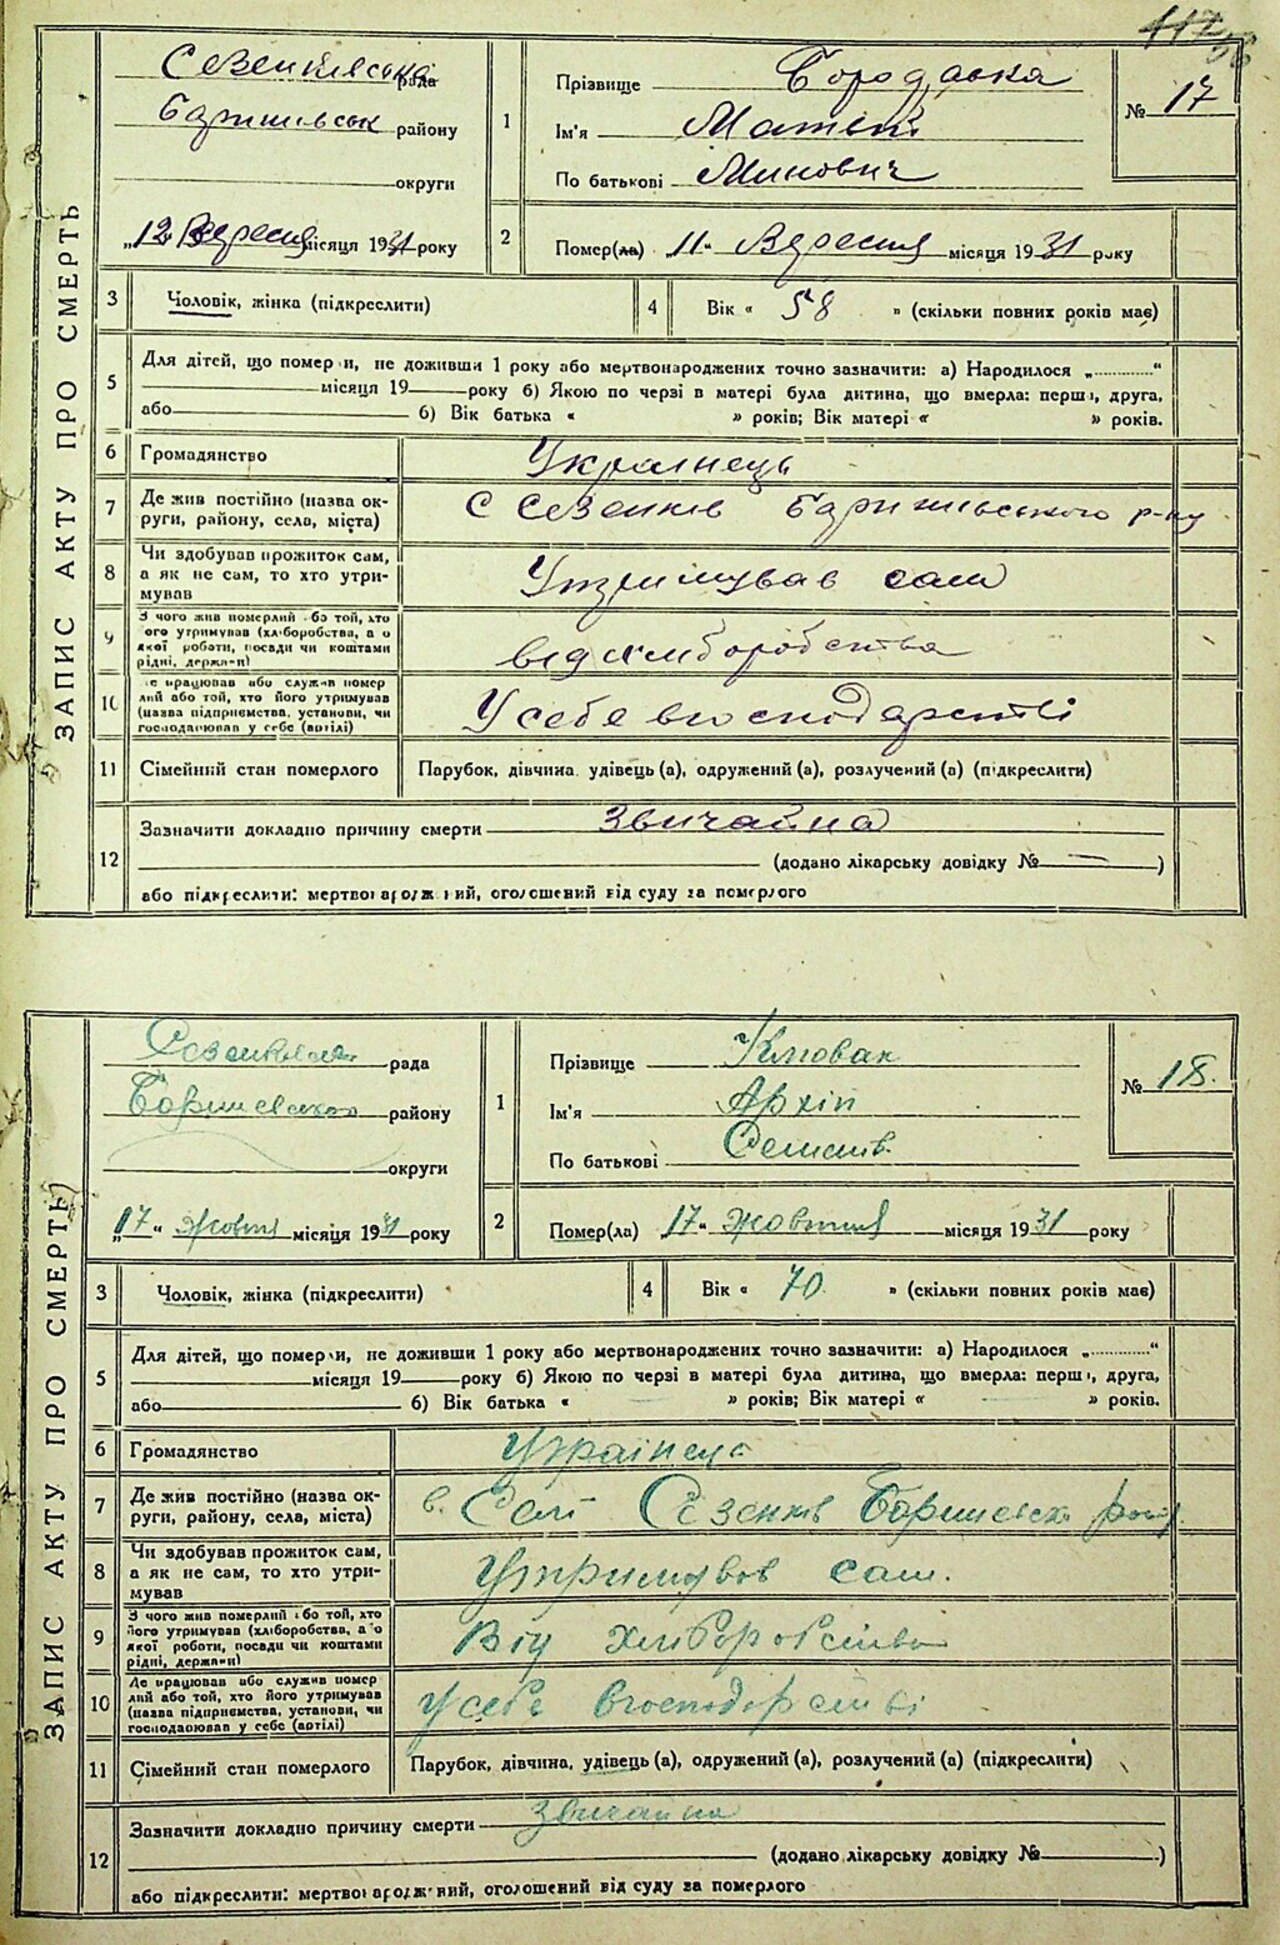 117
56
ЗАПИС АКТУ ПРО СМЕРТЬ
Сезенківська рада
Баришівськ району
округи
„12" Вересня місяця 1931 року
1
Прізвище Бородавка
Ім'я Матвій
По батькові Минович
№ 17
2
Помер(ла) „11" Вересня місяця 1931 року
3
Чоловік, жінка (підкреслити)
4
Вік « 58 » (скільки повних років має)
5
Для дітей, що померли, не доживши 1 року або мертвонароджених точно зазначити: а) Народилося „............"
місяця 19 року б) Якою по черзі в матері була дитина, що вмерла: перша, друга,
або б) Вік батька « » років; Вік матері « » років.
6
Громадянство
Українець
7
Де жив постійно (назва ок-
руги, району, села, міста)
С Сезенків Баришівського р-ну
8
Чи здобував прожиток сам,
а як не сам, то хто утри-
мував
Утримував сам
9
З чого жив померлий або той, хто
його утримував (хліборобства, а о
якої роботи, посади чи коштами
рідні, держави)
від хліборобства
10
Де працював або служив помер
лий або той, хто його утримував
(назва підприємства, установи, чи
господарював у себе (артілі)
У себе в господарстві
11
Сімейний стан померлого
Парубок, дівчина, удівець (а), одружений (а), розлучений (а) (підкреслити)
12
Зазначити докладно причину смерти Звичайна
(додано лікарську довідку № — )
або підкреслити: мертвонароджений, оголошений від суду за померлого
ЗАПИС АКТУ ПРО СМЕРТЬ
рада
району
округи
„17" Жовтня місяця 1931 року
1
Прізвище
Ім'я Архіп
По батькові
№ 18.
2
Помер(ла) 17" Жовтня місяця 1931 року
3
Чоловік, жінка (підкреслити)
4
Вік « 70 » (скільки повних років має)
5
Для дітей, що померли, не доживши 1 року або мертвонароджених точно зазначити: а) Народилося „............"
місяця 19 року б) Якою по черзі в матері була дитина, що вмерла: перша, друга,
або б) Вік батька « » років; Вік матері « » років.
6
Громадянство
Українець
7
Де жив постійно (назва ок-
руги, району, села, міста)
в. Селі Сезенків
8
Чи здобував прожиток сам,
а як не сам, то хто утри-
мував
Утримував сам.
9
З чого жив померлий або той, хто
його утримував (хліборобства, а о
якої роботи, посади чи коштами
рідні, держави)
Від хліборобства
10
Де працював або служив помер
лий або той, хто його утримував
(назва підприємства, установи, чи
господарював у себе (артілі)
У себе в господорстві
11
Сімейний стан померлого
Парубок, дівчина, удівець (а), одружений (а), розлучений (а) (підкреслити)
12
Зазначити докладно причину смерти Звичайна
(додано лікарську довідку № .)
або підкреслити: мертвонароджений, оголошений від суду за померлого